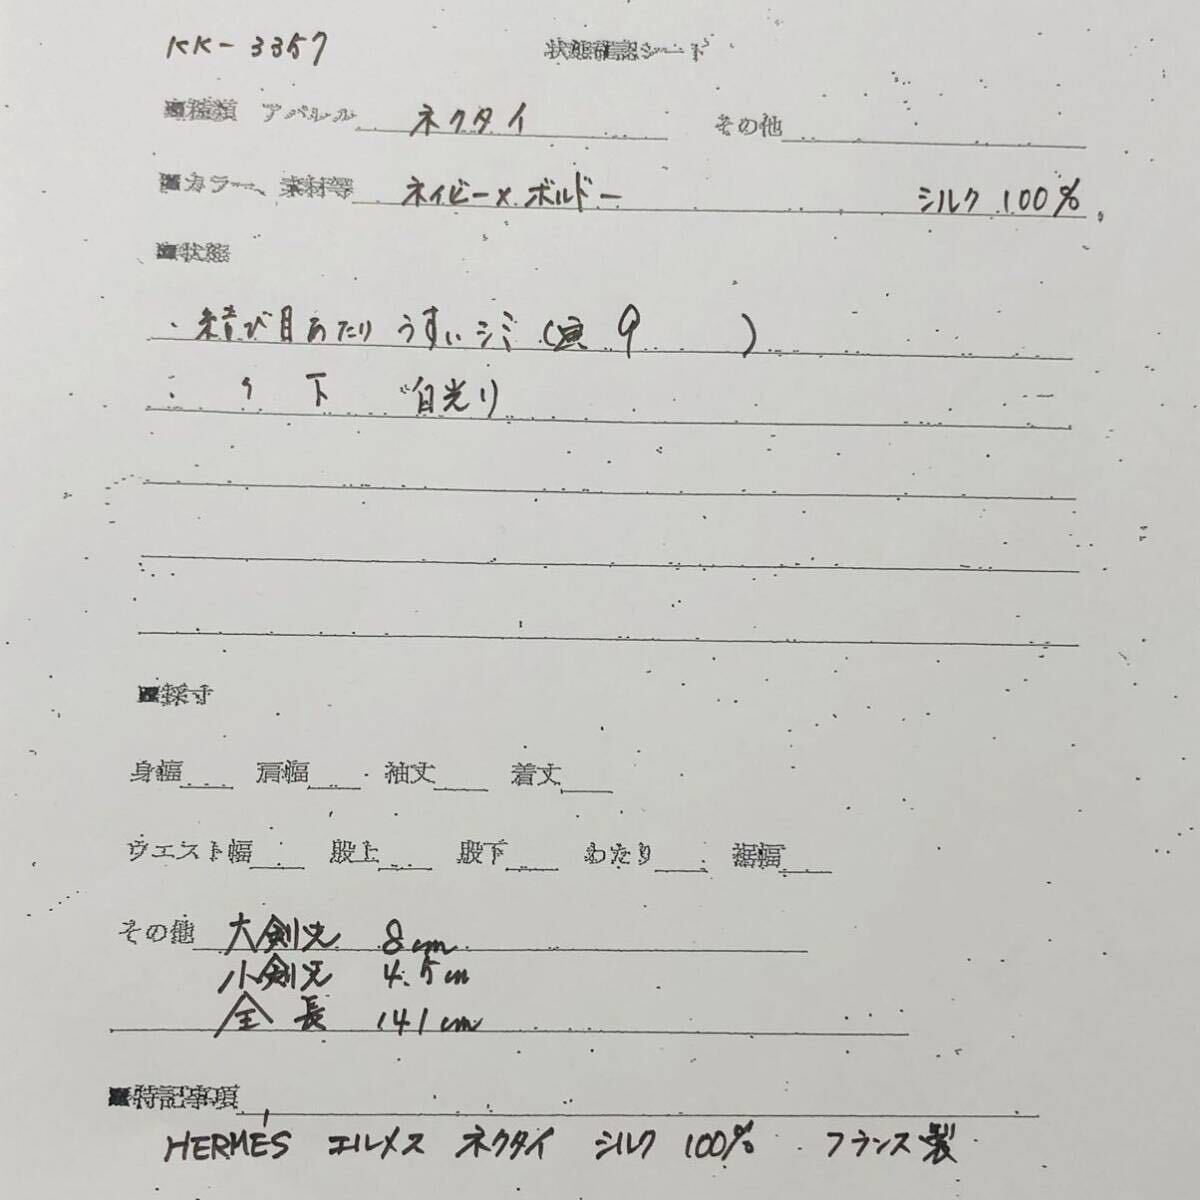 KK-3357 状態確認シート
■種類 アパレル ネクタイ その他
■カラー、素材等 ネイビー×ボルドー シルク 100%
■状態
・結び目あたり うすいシミ(写 9 )
・ 〃 下 白光り
■採寸
身幅 肩幅 袖丈 着丈
ウエスト幅 股上 股下 わたり 裾幅
その他 大剣先 8cm
小剣先 4.5cm
全長 141cm
■特記事項
HERMÈS エルメス ネクタイ シルク 100% フランス製